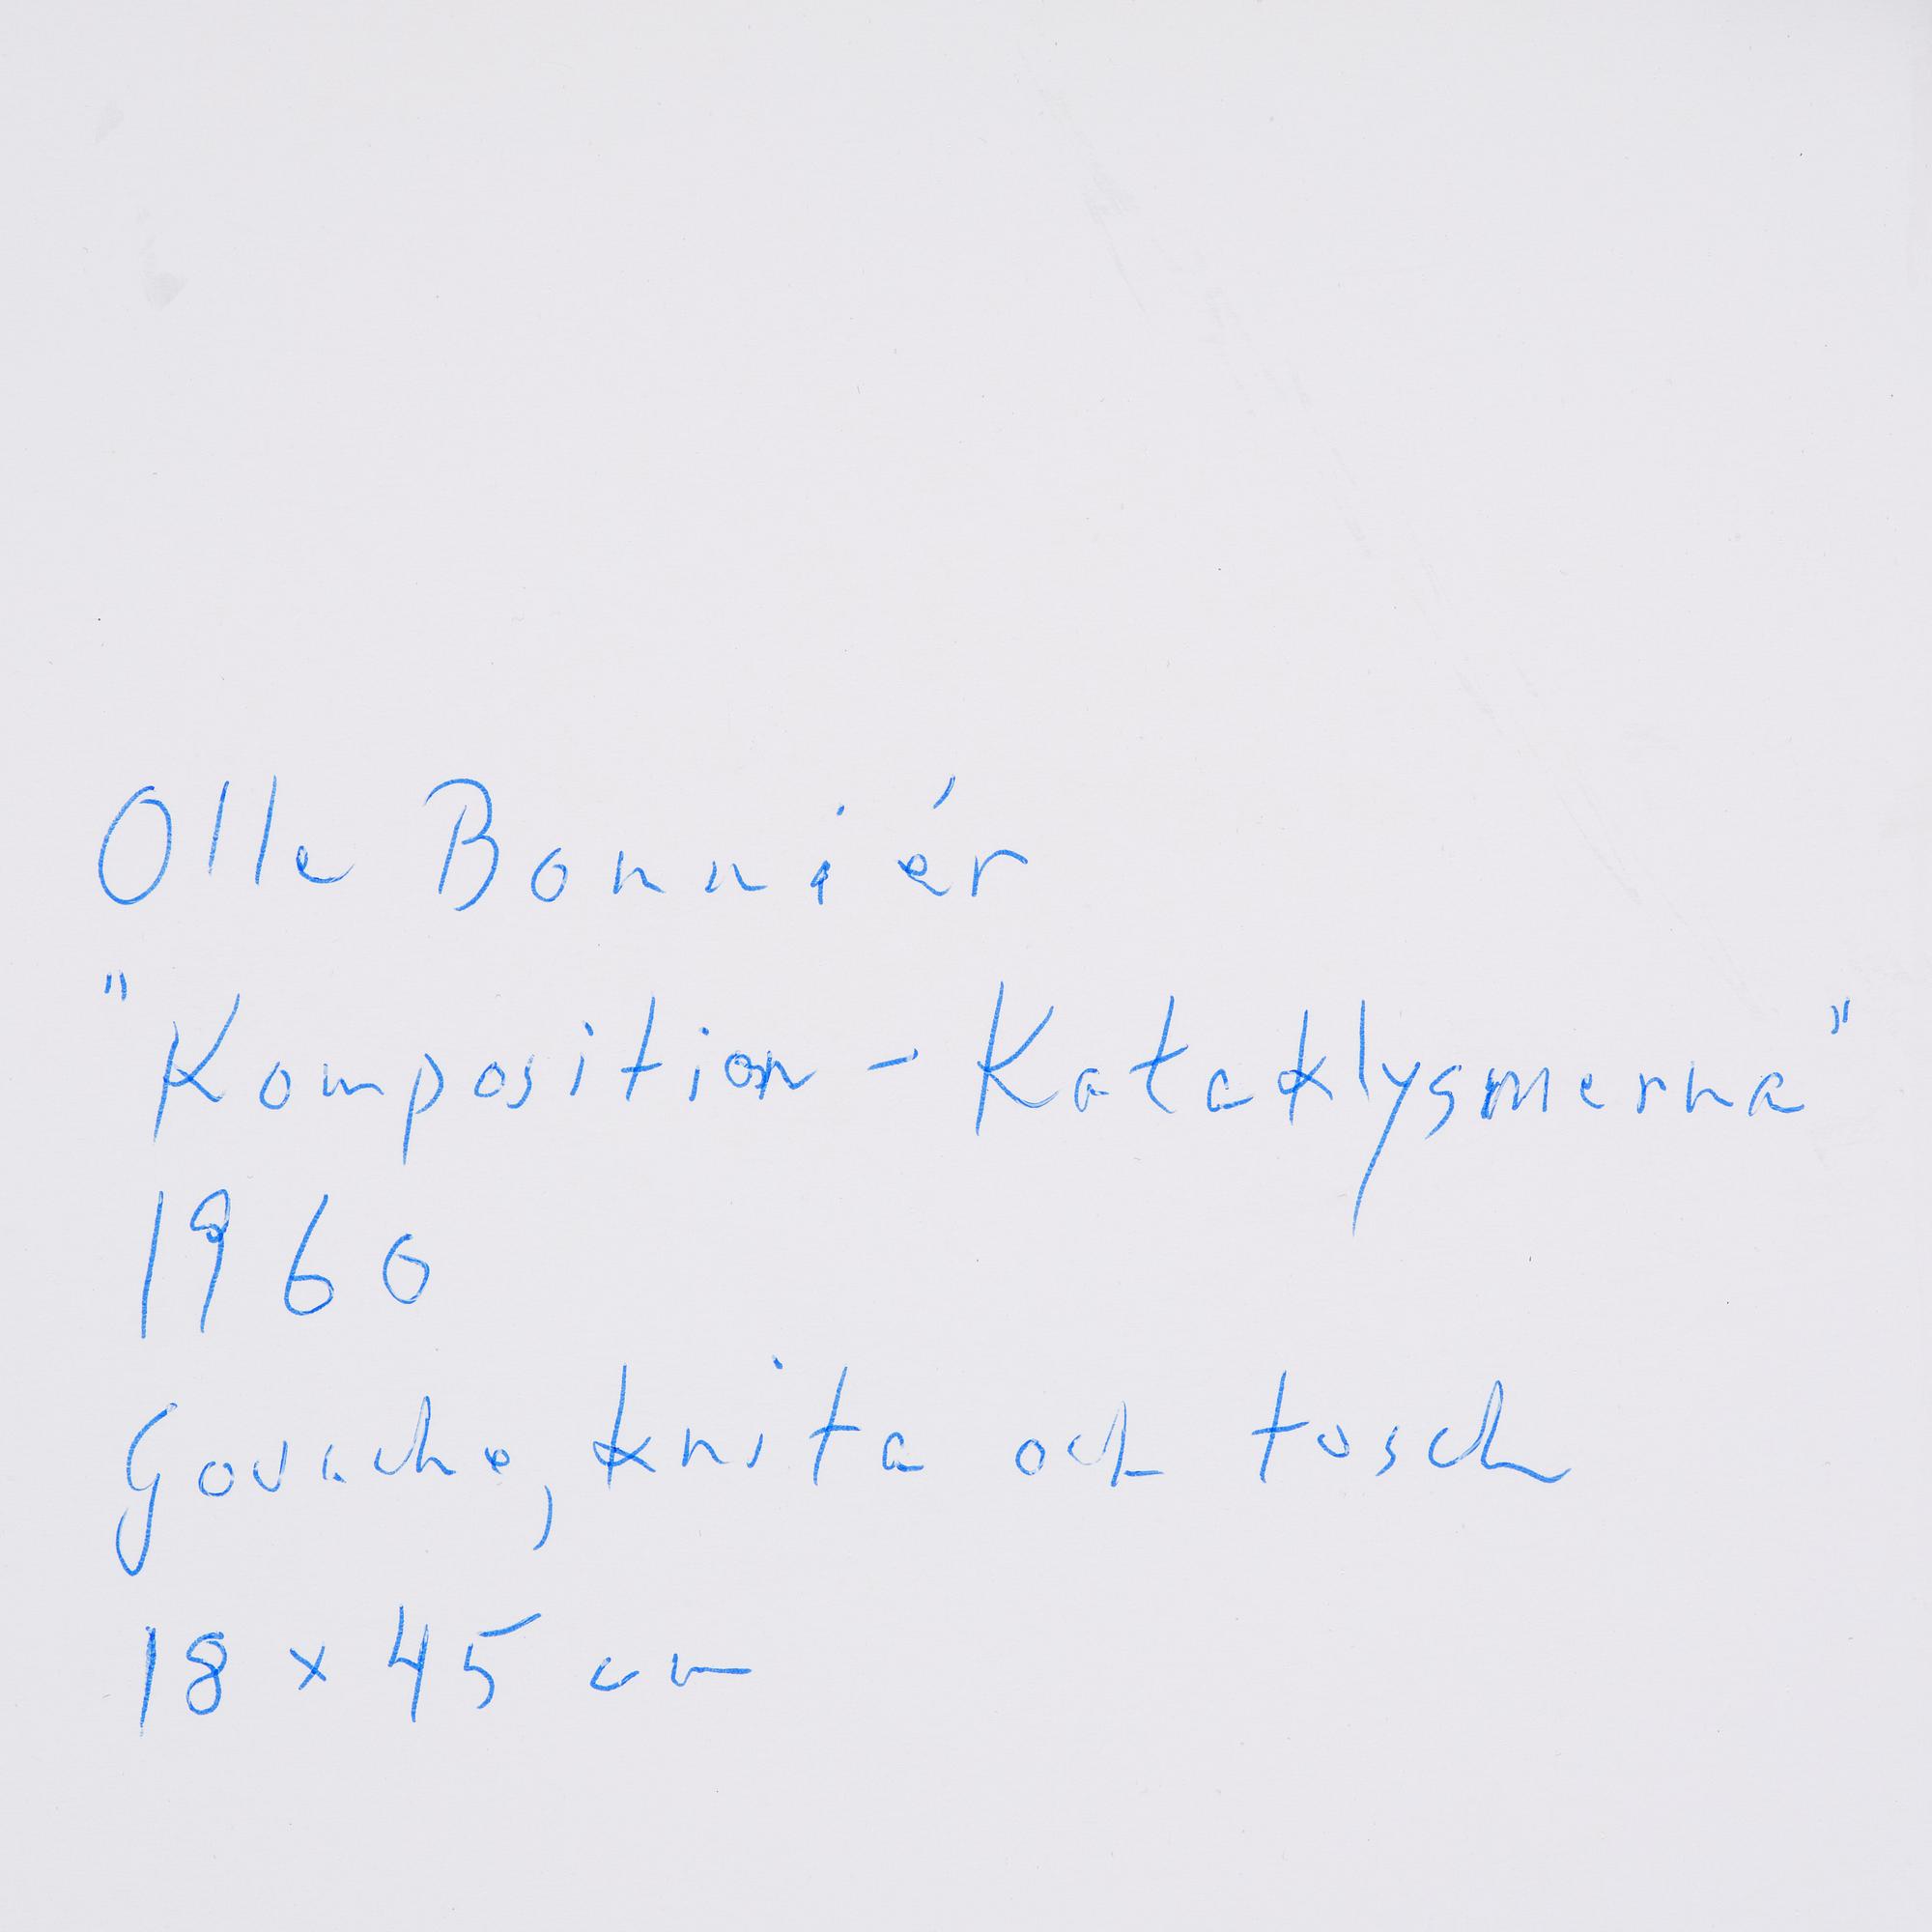 Olle Bonniér
"Komposition - Kataklysmerna"
1960
Gouache, krita och tusch
18 x 45 cm